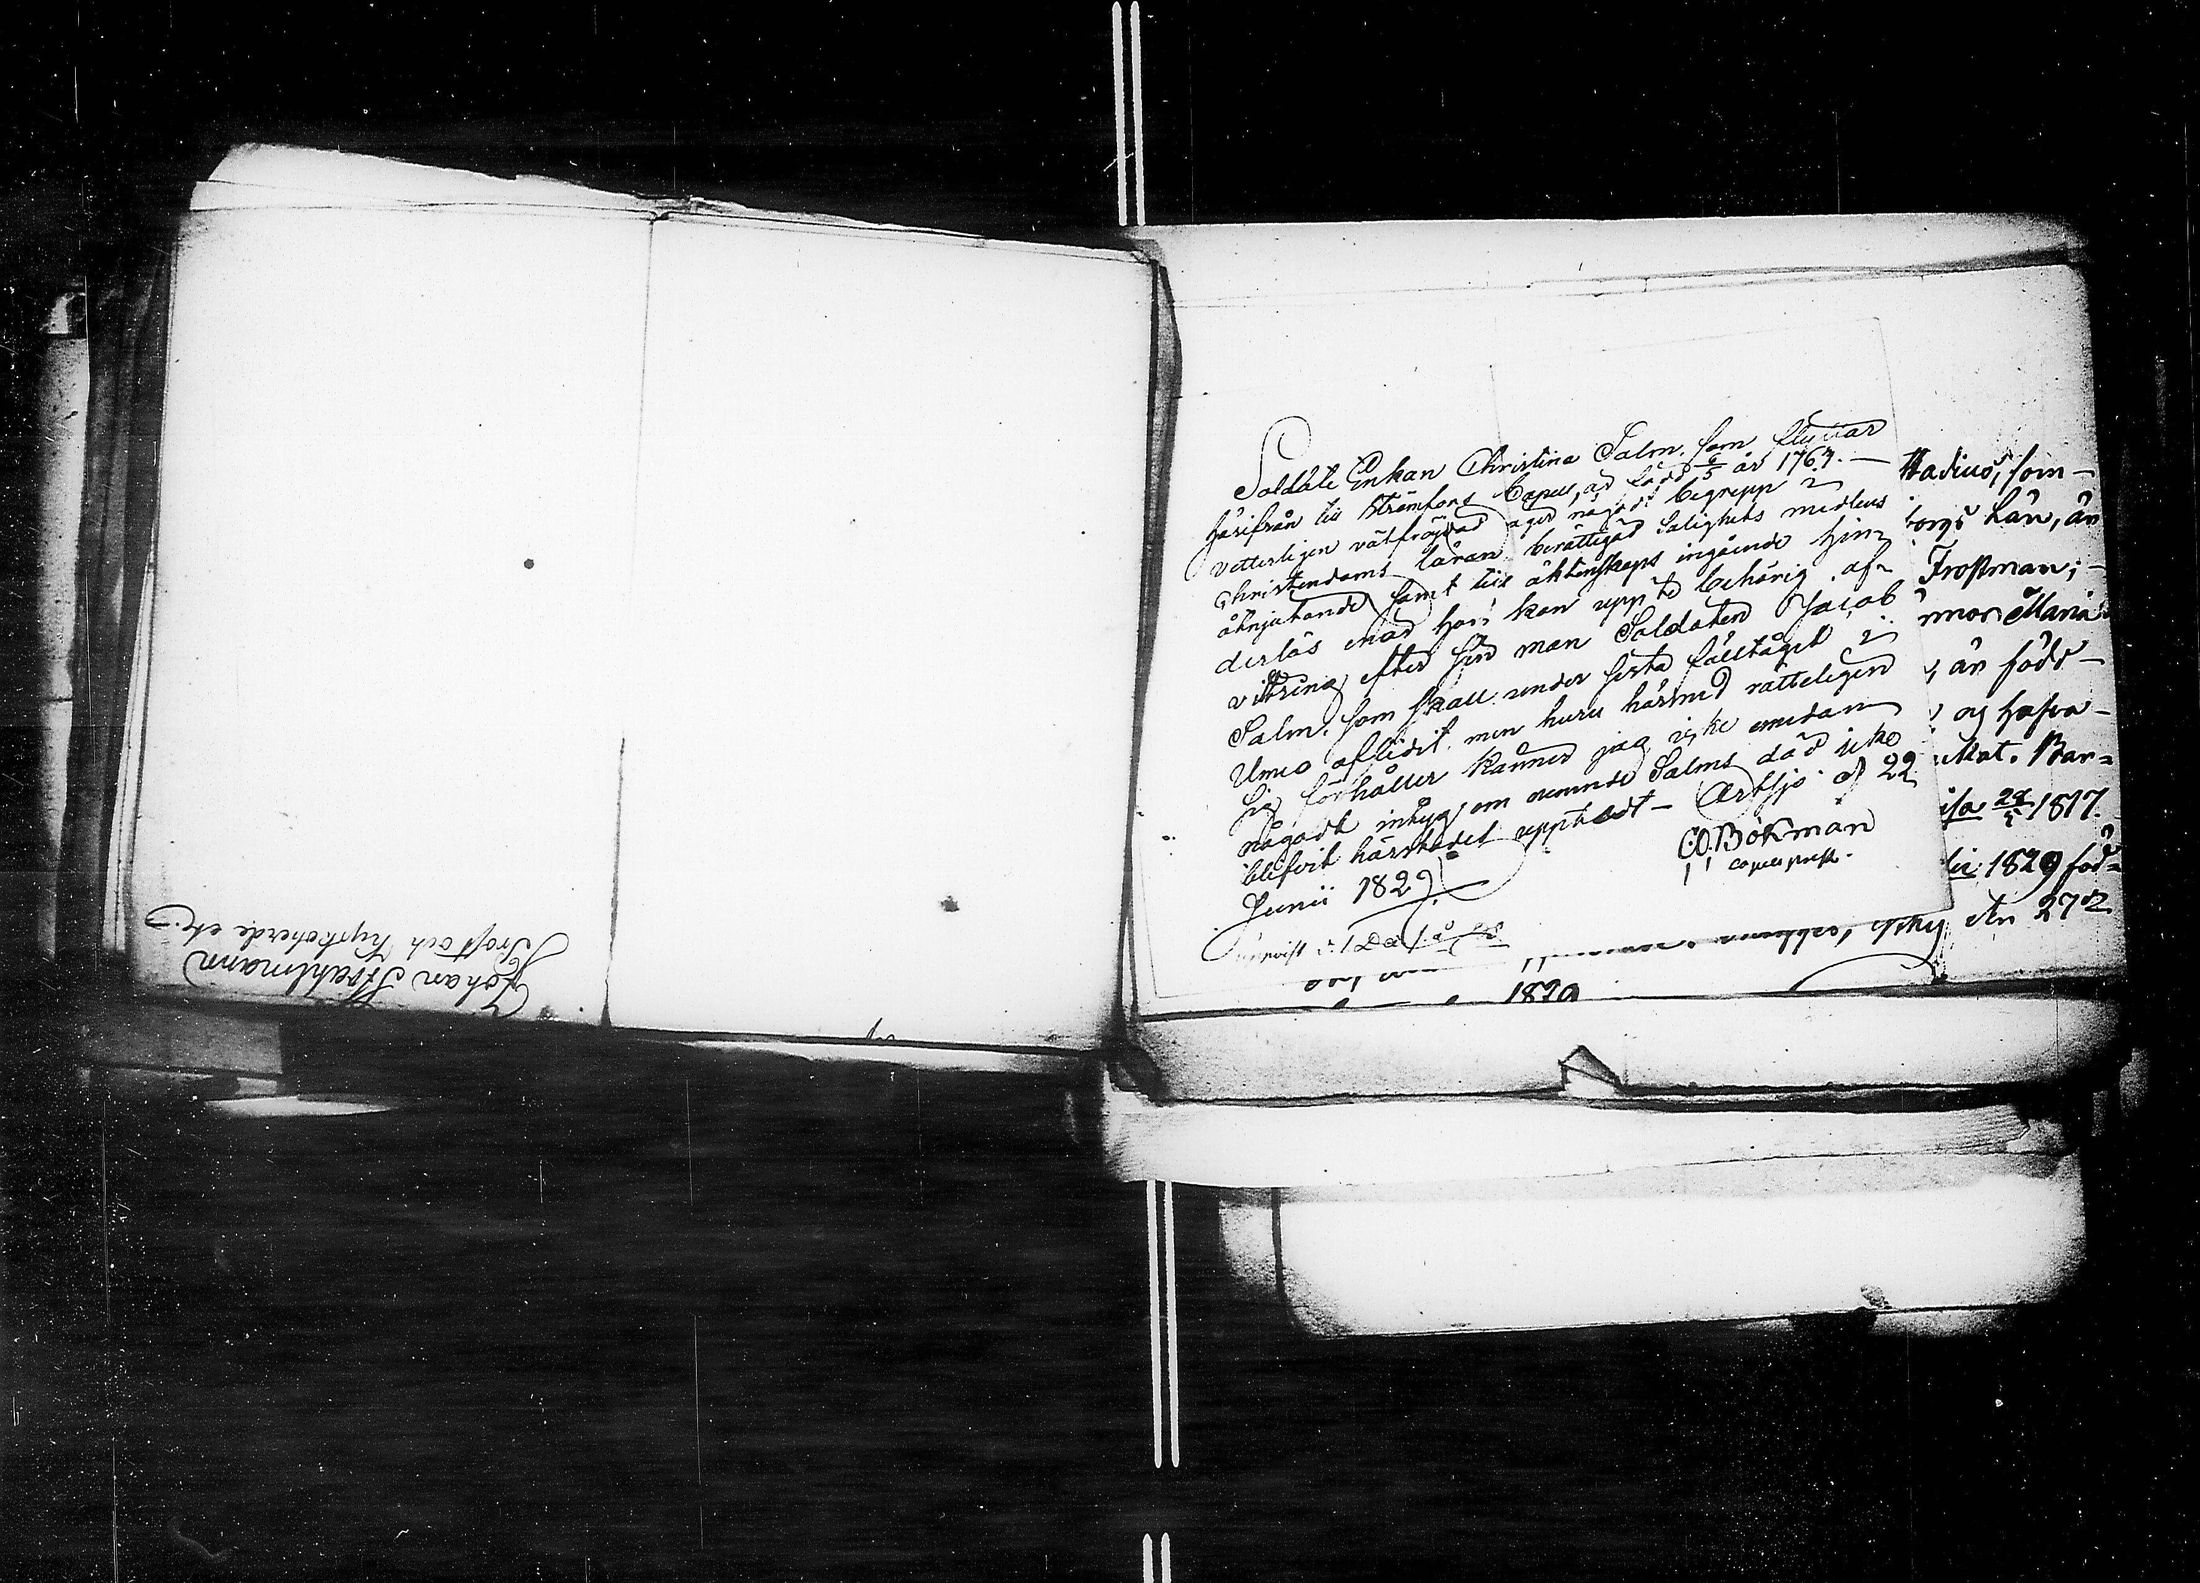 Johan Strahlmann
Prost och Kyrkoherde etc.
Soldats Enkan Christina Salm, som flyttar
härifrån till Strömfors Capell, är född 6/5 år 1764. —
vetterligen välfrejdad äger någodt begrepp i
Christendoms läran berättigad Salighets medlens
åtnjutande samt till äktenskaps ingående hin-
derlös enär hon kan uppte behörig af-
vittring efter sin man Soldaten Jacob
Salm, som skall under sista fälttåget i
Umeo aflidit, men huru härmed rätteligen
sig förhåller känner jag icke emedan
någodt intyg om nemnde Salms död icke
blifvit härstädes upptedt — Artsjö d. 22
Junii 1829.
C.O. Bökman
capell. prest.
Hadius, som —
borgs Län, är
Trossman; —
mor Maria
är född —
og hafva —
Nat. Bar=
isa 28 1817.
1829 föd=
No 272
1829